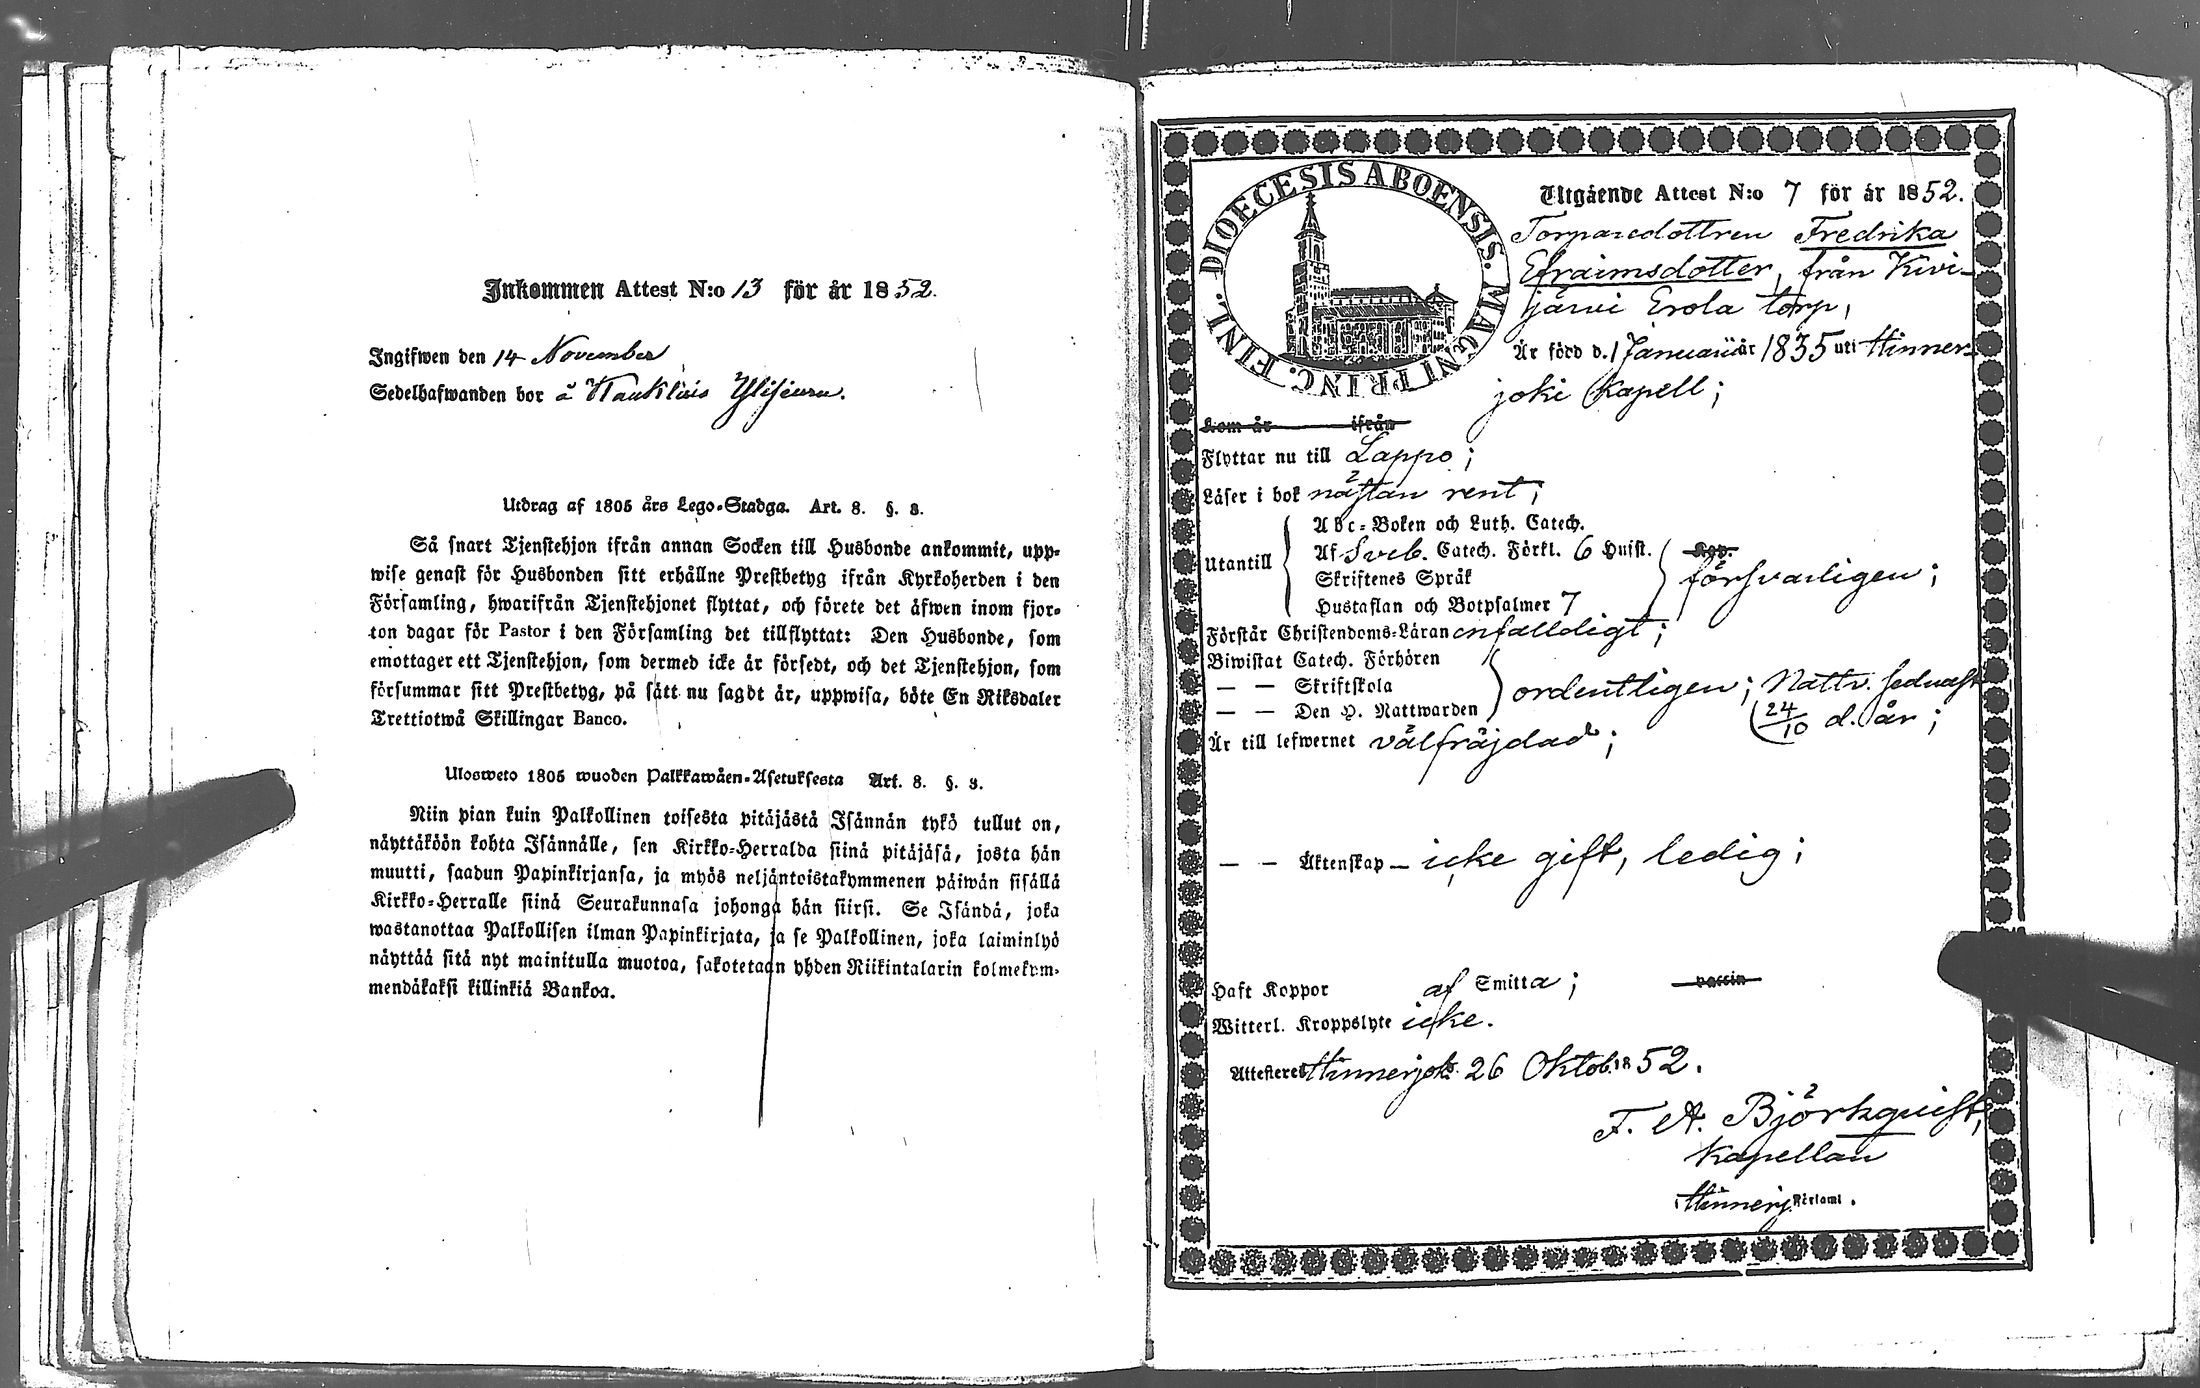 Inkommen Attest N:o 13 för år 1852.
Ingifwen den 14 November
Sedelhafwanden bor å
Utdrag af 1805 års Lego-Stadga. Art. 8. §. 3.
Så snart Tjenstehjon ifrån annan Socken till Husbonde ankommit, upp-
wise genast för Husbonden sitt erhållne Prestbetyg ifrån Kyrkoherden i den
Församling, hwarifrån Tjenstehjonet flyttat, och förete det äfwen inom fjor-
ton dagar för Pastor i den Församling det tillflyttat: Den Husbonde, som
emottager ett Tjenstehjon, som dermed icke är försedt, och det Tjenstehjon, som
försummar sitt Prestbetyg, på sätt nu sagdt är, uppwisa, böte En Riksdaler
Trettiotwå Skillingar Banco.
Ulosweto 1805 wuoden Palkkawäen-Asetuksesta Art. 8. §. 3.
Niin pian kuin Palkollinen toisesta pitäjästä Isännän tykö tullut on,
näyttäköön kohta Isännälle, sen Kirkko-Herralda siinä pitäjäsä, josta hän
muutti, saadun Papinkirjansa, ja myös neljäntoistakymmenen päiwän sisällä
Kirkko-Herralle siinä Seurakunnasa johonga hän siirsi. Se Isändä, joka
wastanottaa Palkollisen ilman Papinkirjata, ja se Palkollinen, joka laiminlyö
näyttää sitä nyt mainitulla muotoa, sakotetaan yhden Riikintalarin kolmekym-
mendäkaksi killinkiä Bankoa.
DIOECESIS ABOENSIS. MAGNI PRINC. FINL.
Utgående Attest N:o 7 för år 1852.
Torparedottren Fredrika
Efraimsdotter, från Kivi-
järvi Erola torp,
Är född d. 1 Januarii år 1835 uti Hinner-
joki Kapell;
Kom år ifrån
Flyttar nu till Lappo;
Läser i bok nästan rent;
Utantill
Abc-Boken och Luth. Catech.
Af Sveb. Catech. Förkl. 6 Hufst.
Skriftenes Språk
Hustaflan och Botpsalmer 7
försvarligen;
Förstår Christendoms-Läran enfalldigt;
Biwistat Catech. Förhören
— — Skriftskola
— — Den H. Nattwarden
ordentligen; Nattv. sednast
24/10 d. år;
Är till lefwernet välfräjdad;
— — Äktenskap — icke gift, ledig;
Haft Koppor af Smitta; vaccin
Witterl. Kroppslyte icke.
Attesteres Hinnerjoki 26 Oktob. 1852.
F. A. Björkquist,
Kapellan